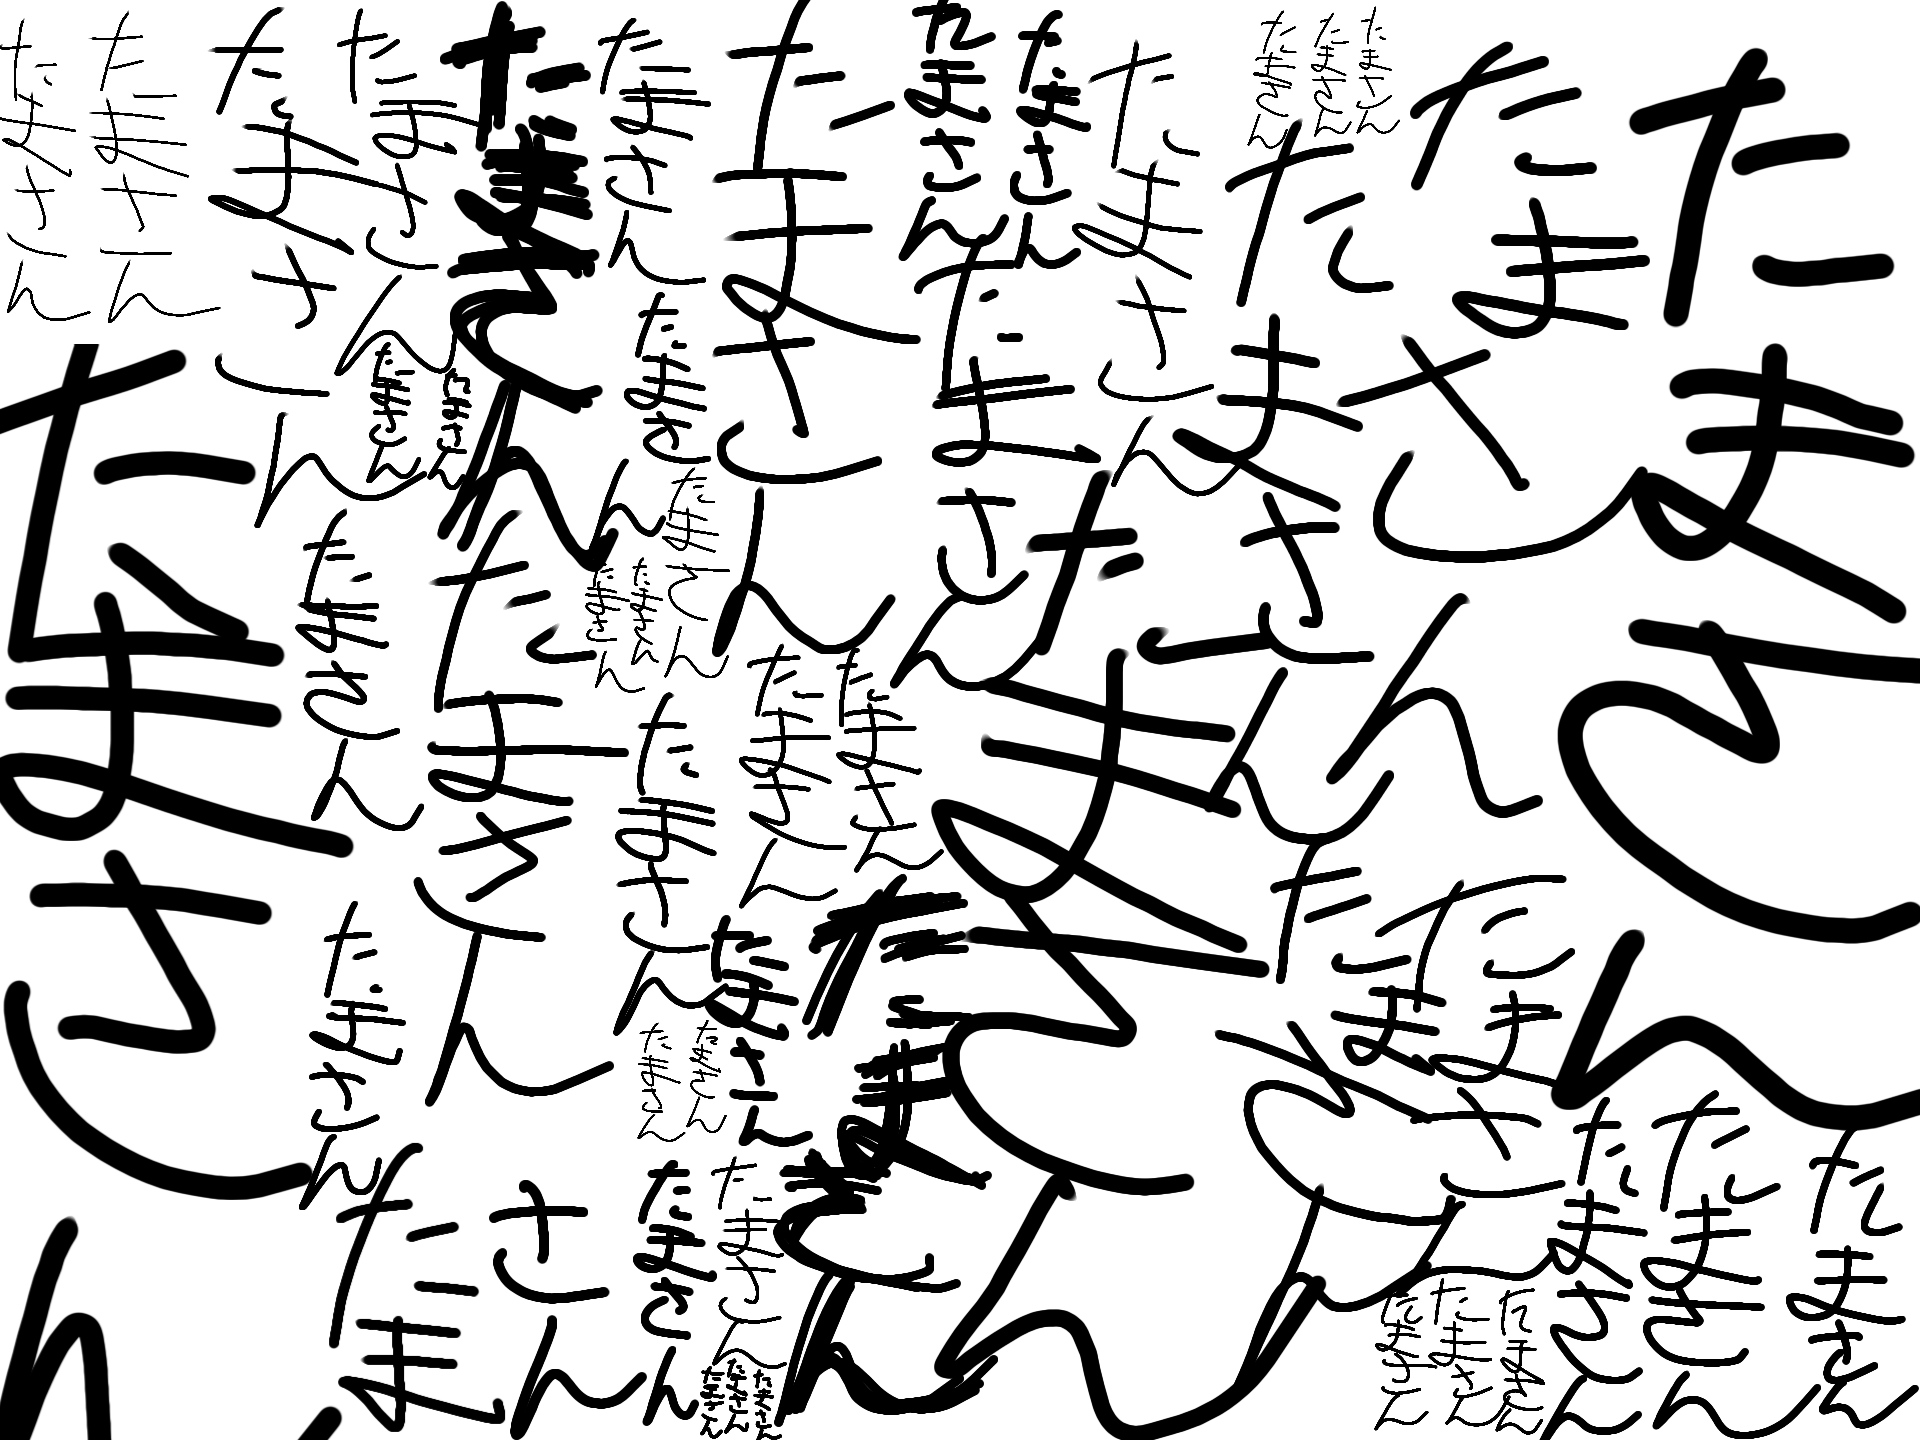 たまさん
たまさん
たまさん
たまさん
たまさん
たまさん
たまさん
たまさん
たまさん
たまさん
たまさん
たまさん
たまさん
たまさん
たまさん
たまさん
たまさん
たまさん
たまさん
たまさん
たまさん
たまさん
たまさん
たまさん
たまさん
たまさん
たまさん
たまさん
たまさん
たまさん
たまさん
たまさん
たまさん
たまさん
たまさん
たまさん
たまさん
たまさん
たまさん
たまさん
たまさん
たまさん
たまさん
たまさん
たまさん
たまさん
たまさん
たまさん
たまさん